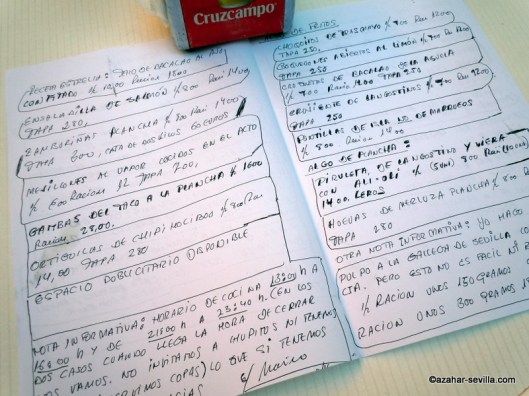 Cruzcampo
RECETA ESTRELLA: TACO DE BACALAO AL
CON TOMATE 1/2 12,00 Racion 18,00
ENSALADILLA DE SALMÓN 1/2 800 Raci 14,00
TAPA 250,
ZAMBURIÑAS PLANCHA 1/2 800 Raci 1400
TAPA 600, CATA DE DOS KILOS 60 EUROS
MEJILLONES AL VAPOR COCIDOS EN EL ACTO
1/2 600 Racion 12 TAPA 200,
GAMBAS DEL TACO A LA PLANCHA 1/2 1600
Racion 28,00.
ORTIGUILLAS DE
14,00 TAPA 280
ESPACIO PUBLICITARIO DISPONIBLE
NOTA INFORMATIVA: HORARIO DE COCINA 13:00 h A
16:00 h Y DE 21:00 h A 23:40 h (EN LOS
DOS CASOS CUANDO LLEGA LA HORA DE CERRAR
NOS VAMOS. NO INVITAMOS A CHUPITOS NI TENEMOS
COPAS) LO QUE SI TENEMOS
DE FRITOS
1/2 800 Raci 1200
TAPA 250,
BOQUERONES ABIERTOS AL LIMÓN 1/2 700
TAPA 250
DE BACALAO DE LA ABUELA
1/2 700 Raci 1200 TAPA 250
CRUJIENTE DE LANGOSTINOS 1/2 700 Raci 1200
TAPA 250
PUNTILLAS DE NO DE MARRUECOS
1/2 800 Racion 14,00
ALGO DE PLANCHA:
PIRULETA DE LANGOSTINO Y VIEIRA
CON ALI-OLI 1/2 (5un) 800 Raci (10un)
14,00 EUROS
HUEVAS DE MERLUZA PLANCHA 1/2 800
TAPA 280
OTRA NOTA INFORMATIVA: YO HAGO
PULPO A LA GALLEGA DE SEVILLA CO
PERO ESTO NO ES FACIL NI
1/2 RACION UNOS 150 GRAMOS
RACION UNOS 300 GRAMOS
©azahar-sevilla.com